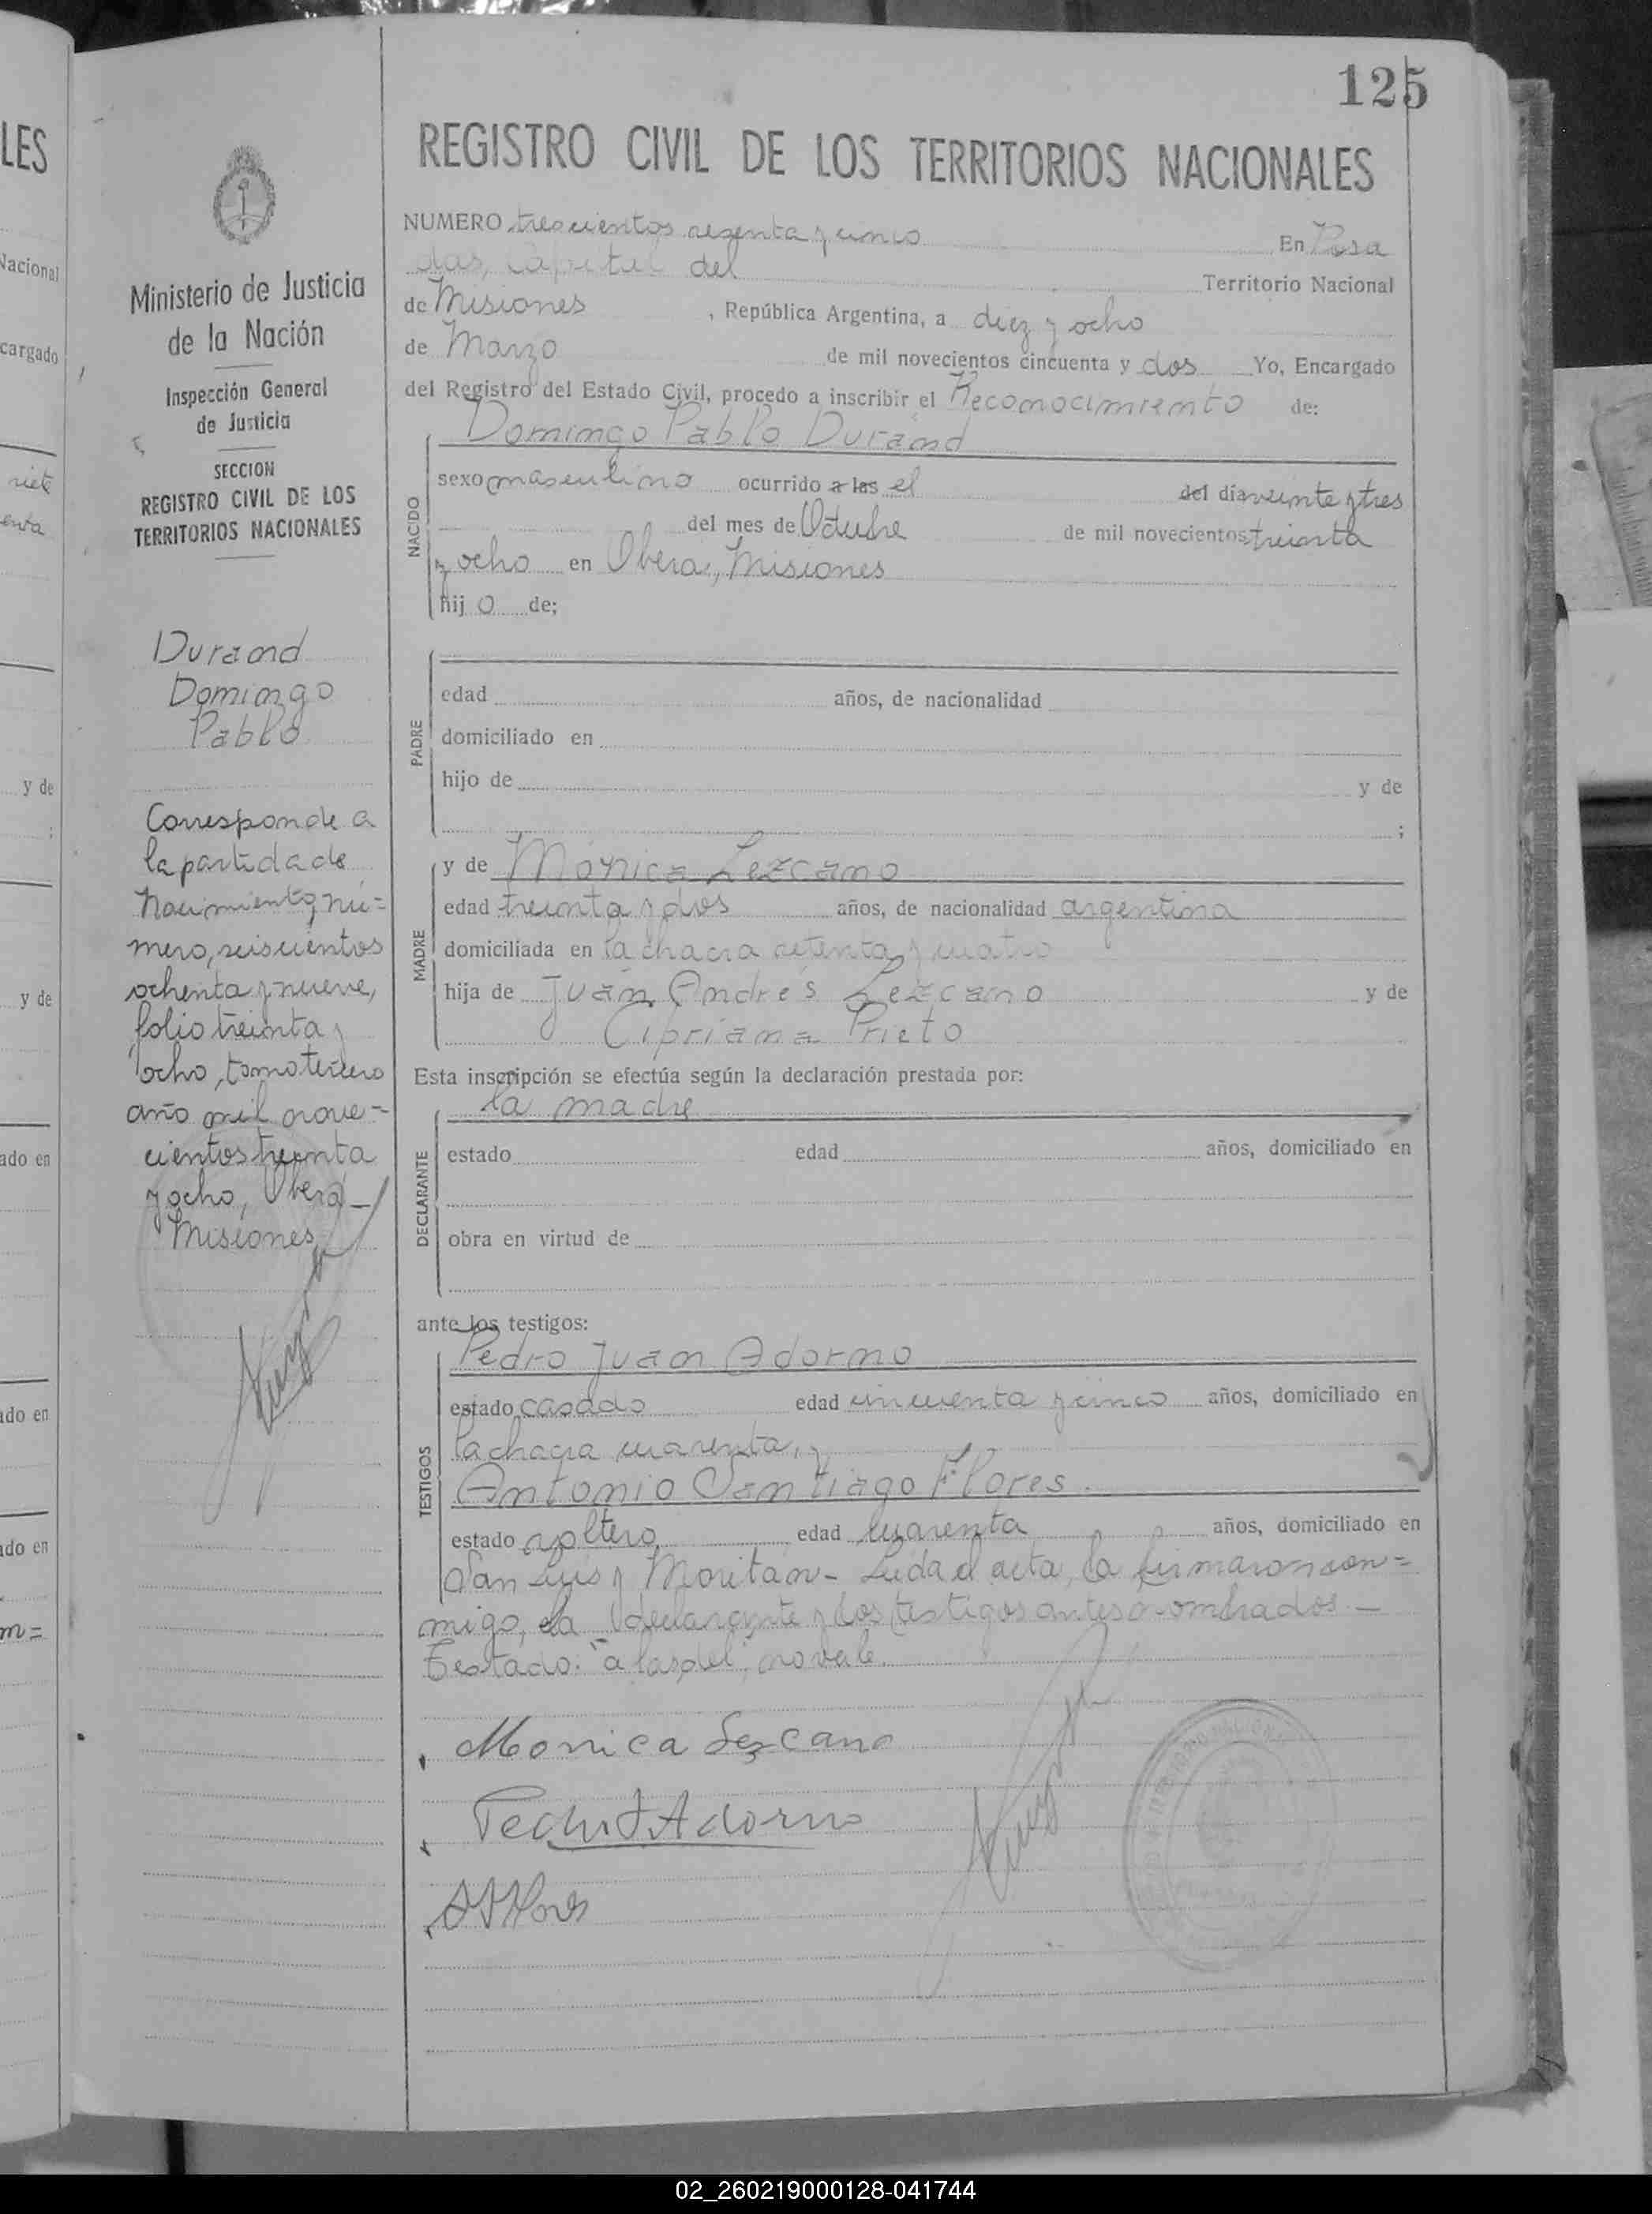 125
LES
Nacional
cargado
siete
enta
y de
;
y de
ado en
ado en
ado en
m=
Ministerio de Justicia
de la Nación
Inspección General
de Justicia
SECCION
REGISTRO CIVIL DE LOS
TERRITORIOS NACIONALES
Durand
Domingo
Pablo
Corresponde a
la partida de
Nacimiento, nú=
mero, seiscientos
ochenta y nueve,
folio treinta y
ocho, tomo tercero
año mil nove-
cientos treinta
y ocho, Oberá-
Misiones
REGISTRO CIVIL DE LOS TERRITORIOS NACIONALES
NUMERO trescientos sesenta y cinco En Posa
das, Capital del Territorio Nacional
de Misiones , República Argentina, a diez y ocho
de Marzo de mil novecientos cincuenta y dos Yo, Encargado
del Registro del Estado Civil, procedo a inscribir el Reconocimiento de:
Domingo Pablo Durand
NACIDO
sexo masculino ocurrido a las el del día veinte y tres
del mes de Octubre de mil novecientos treinta
y ocho en Obera, Misiones
hij o de;
PADRE
edad años, de nacionalidad
domiciliado en
hijo de y de
;
MADRE
y de Mónica Lezcano
edad treinta y dos años, de nacionalidad argentina
domiciliada en la chacra setenta y cuatro
hija de Juan Andrés Lezcano y de
Cipriana Prieto
Esta inscripción se efectúa según la declaración prestada por:
la madre
DECLARANTE
estado edad años, domiciliado en
obra en virtud de
ante los testigos:
TESTIGOS
Pedro Juan Adorno
estado casado edad cincuenta y cinco años, domiciliado en
la chacra cuarenta, y
Antonio Santiago Flores.
estado soltero, edad cuarenta años, domiciliado en
San Luis y Moritán- Leída el acta, la firmaron con=
migo, la declarante y los testigos antes nombrados.-
Testado: "a las, del", no vale.
Monica Lezcano
Pedro J Adorno
A S Flores
02_260219000128-041744